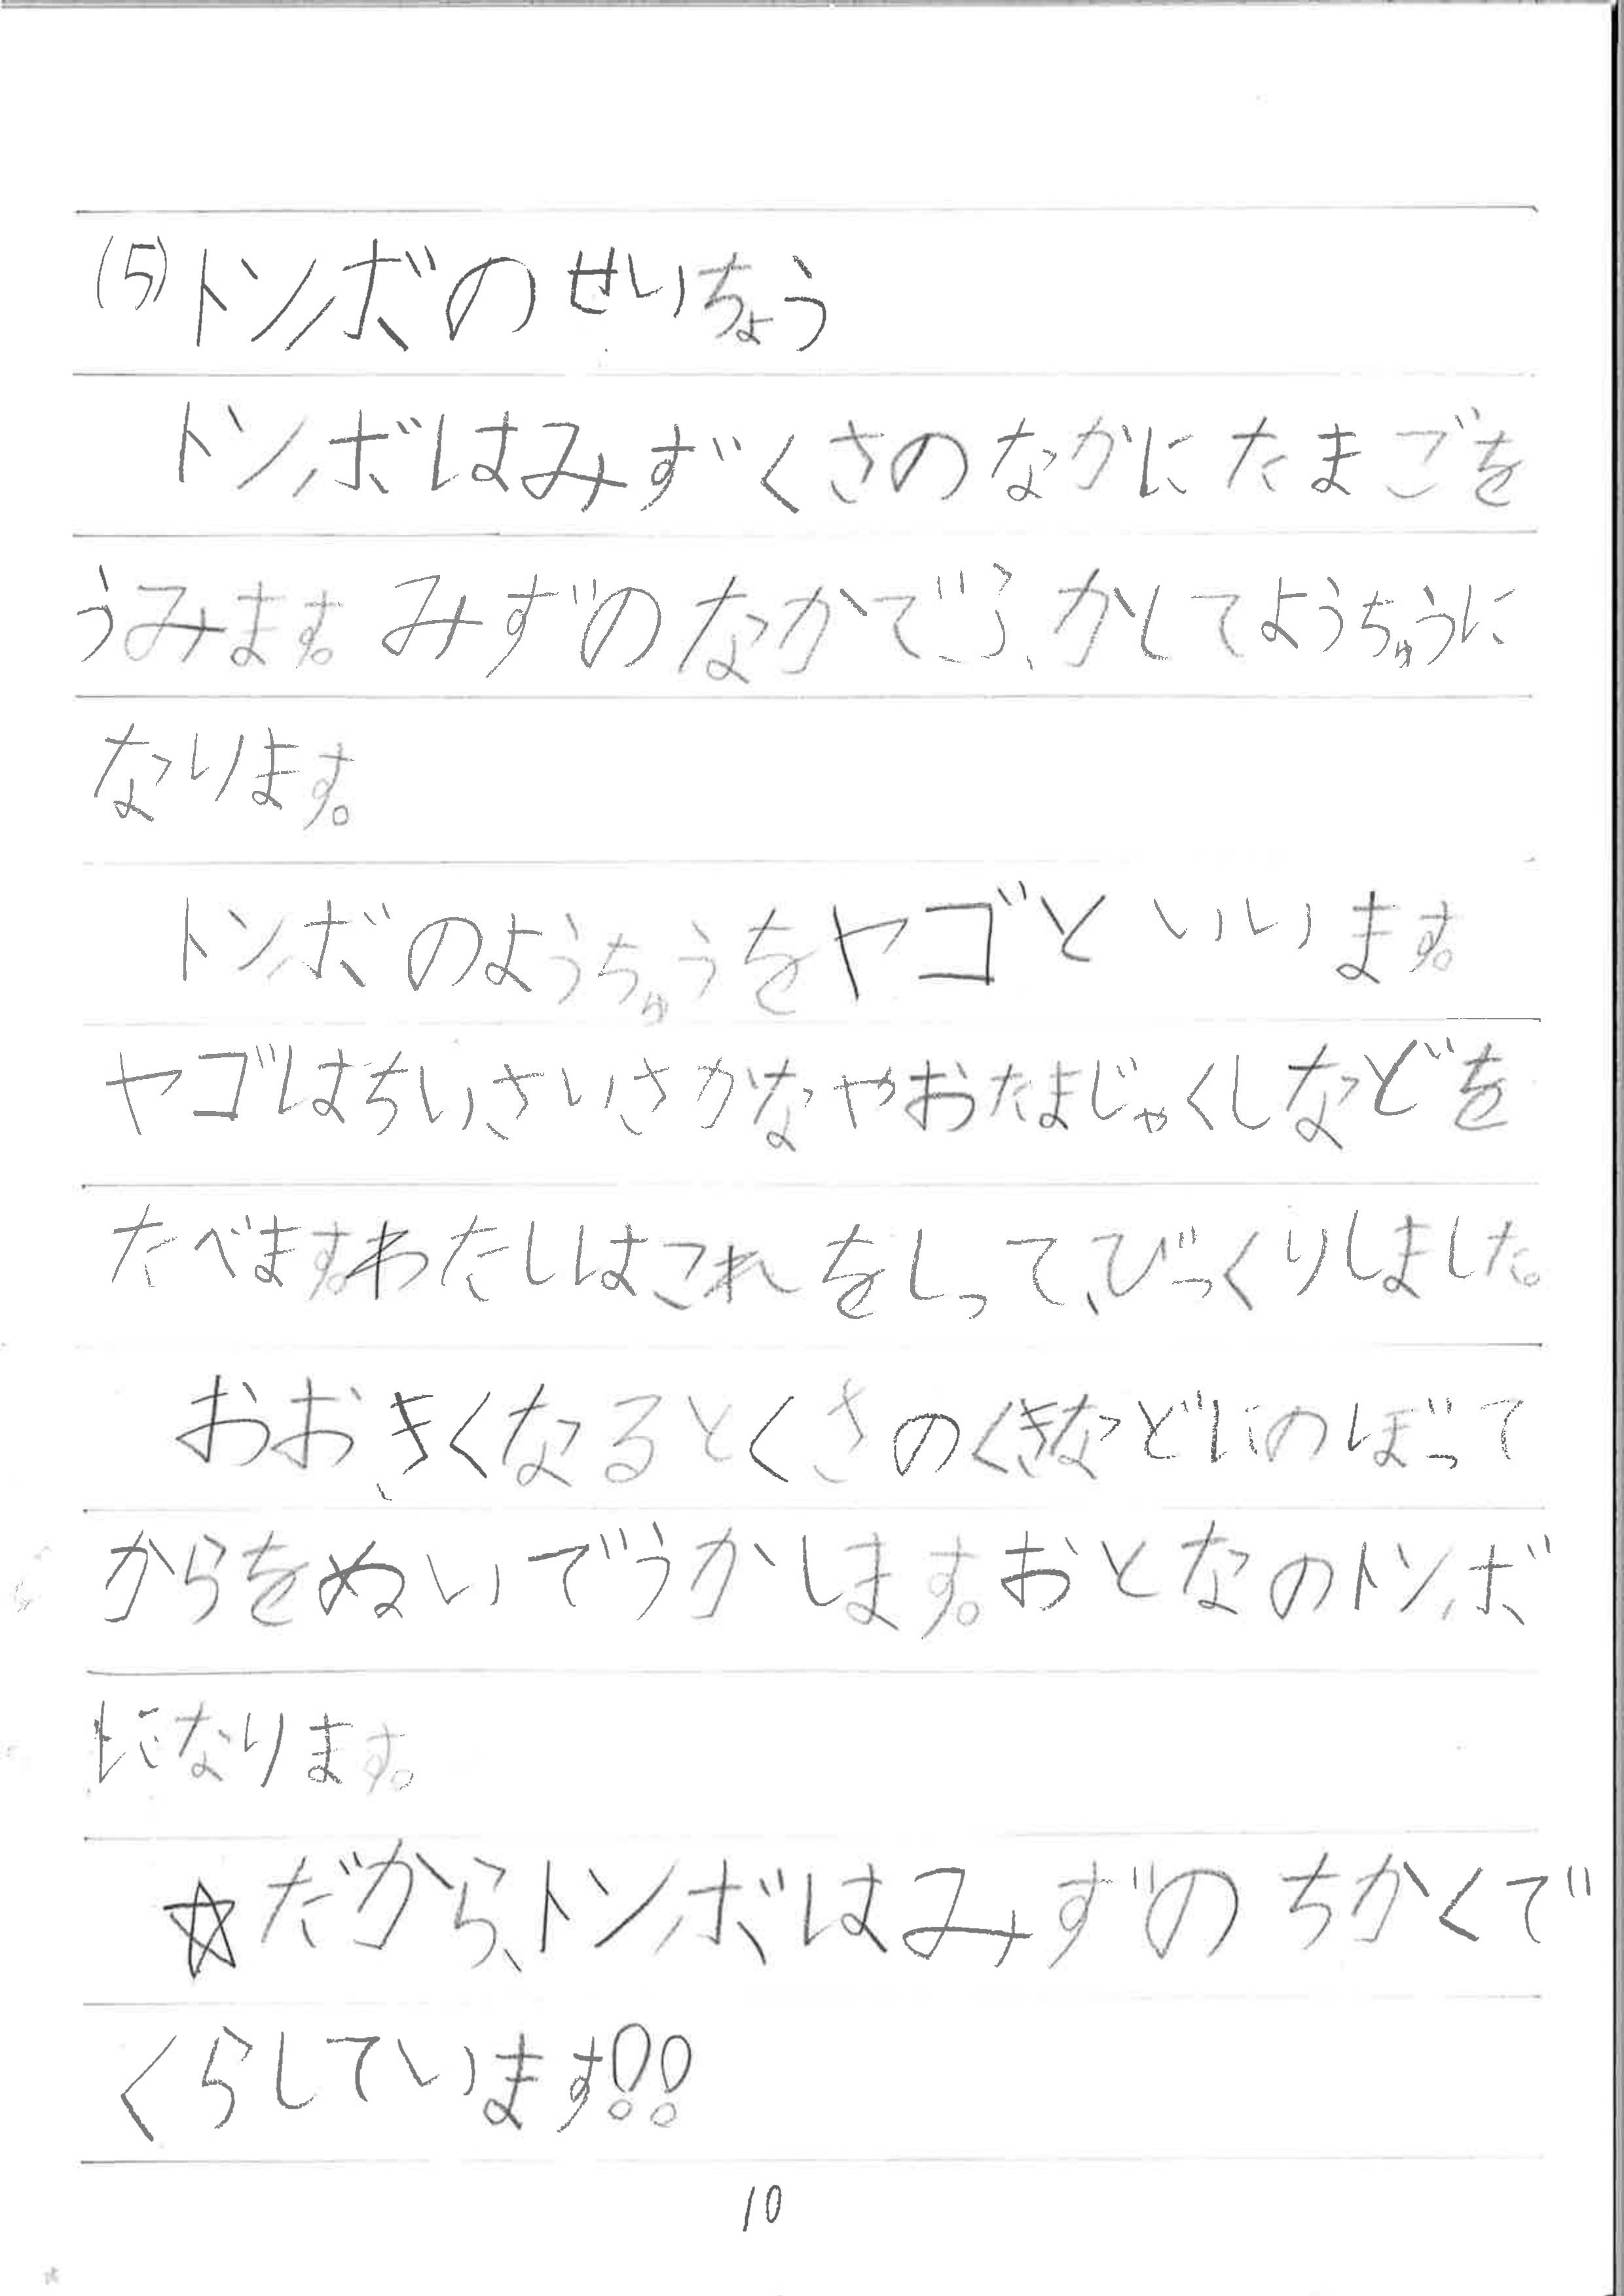 (5)トンボのせいちょう
トンボはみずくさのなかにたまごを
うみます。みずのなかでふかしてようちゅうに
なります。
トンボのようちゅうをヤゴといいます。
ヤゴはちいさいさかなやおたまじゃくしなどを
たべます。わたしはこれをしって、びっくりしました。
おおきくなるとくさのくきなどにのぼって
からをぬいでうかします。おとなのトンボ
になります。
☆だから、トンボはみずのちかくで
くらしています!!
10